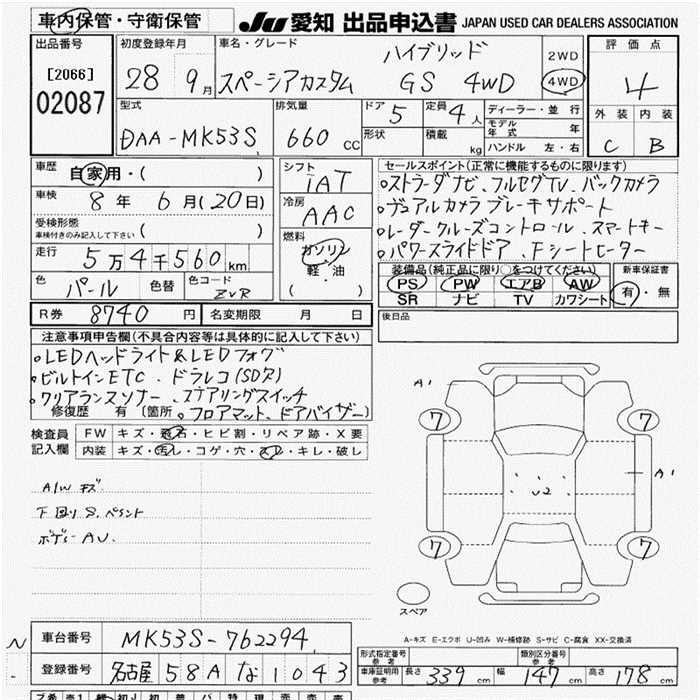 車内保管・守衛保管
JU 愛知 出品申込書 JAPAN USED CAR DEALERS ASSOCIATION
出品番号
[2066]
02087
初度登録年月
28 9月
車名・グレード
ハイブリッド
スペーシアカスタム GS 4WD
2WD
4WD
評価点
4
外装 内装
C B
型式
DAA-MK53S
排気量
660 CC
ドア 5
形状
定員 4人
積載 kg
ディーラー・並行
モデル年式 年
ハンドル 左・右
車歴
自家用・( )
車検
8年 6月(20日)
受検形態
車検付きのみ記入して下さい ( )
走行
5万4千560km
色 パール 色替 色コード ZVR
シフト
iAT
冷房
AAC
燃料
ガソリン
軽・油
( )
セールスポイント(正常に機能するものに限ります)
・ストラーダナビ、フルセグTV、バックカメラ
・デュアルカメラブレーキサポート
・レーダークルーズコントロール、スマートキー
・パワースライドドア、Fシートヒーター
装備品(純正品に限り○をつけてください) 新車保証書
PS PW エアB AW
SR ナビ TV カワシート
有・無
R券 8740 円 名変期限 月 日
後日品
注意事項申告欄(不具合内容等は具体的に記入して下さい)
・LEDヘッドライト&LEDフォグ
・ビルトインETC、ドラレコ(SD欠)
・クリアランスソナー、ステアリングスイッチ
修復歴 有 (箇所 ・フロアマット、ドアバイザー)
検査員記入欄
FW キズ・飛石・ヒビ割・リペア跡・X要
内装 キズ・汚れ・コゲ・穴・スレ・キレ・破し
A/W キズ
下回りS.ペイント
ボディーAU.
A1
7 7
A1
U2
7 7
スペア
A-キズ E-エクボ U-凹み W-補修跡 S-サビ C-腐食 XX-交換済
車台番号 MK53S-762294
登録番号 名古屋 58A な 1043
形式指定番号 参考
類別区分番号 参考
車庫証明用 参考 長さ 339cm 幅 147cm 高さ 178cm